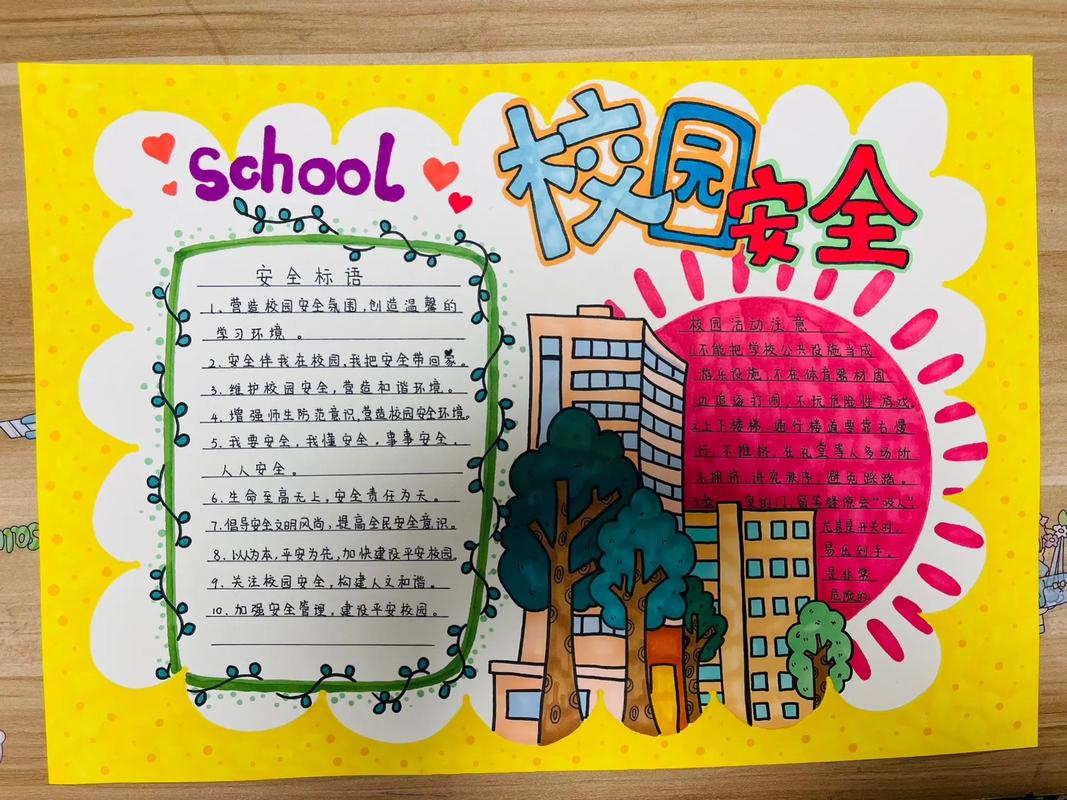 school
校园安全
安全标语
1、营造校园安全氛围,创造温馨的
学习环境。
2、安全伴我在校园,我把安全带回家。
3、维护校园安全,营造和谐环境。
4、增强师生防范意识,营造校园安全环境。
5、我要安全,我懂安全,事事安全,
人人安全。
6、生命至高无上,安全责任为天。
7、倡导安全文明风尚,提高全民安全意识。
8、以人为本,平安为先,加快建设平安校园。
9、关注校园安全,构建人文和谐。
10、加强安全管理,建设平安校园。
校园活动注意
1.不能把学校公共设施当成
游乐设施;不在体育器材周
边追逐打闹,不玩危险性游戏。
2.上下楼梯、通行楼道要靠右慢
行,不推挤,在礼堂等人多场所
不拥挤,讲究秩序,避免踩踏。
3.教室的门、窗等缝隙会“咬人”,
尤其是开关时,
易压到手,
是非常
危险的。